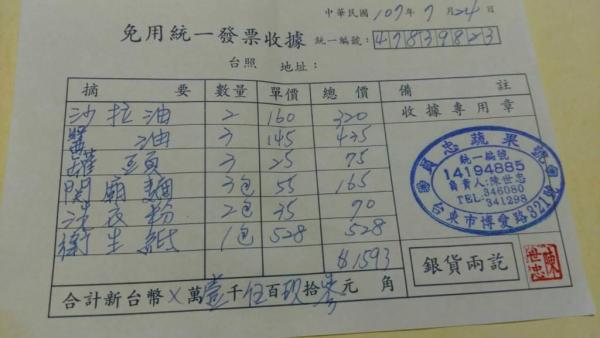 中華民國 107年 7月 24日
免用統一發票收據 統一編號: 47839823
台照 地址:
摘要 數量 單價 總價 備註
沙拉油 2 160 320 收據專用章
醬油 3 145 435
罐頭 3 25 75
關廟麵 3包 55 165
洗衣粉 2包 35 70
衛生紙 1包 528 528
$1593
忠蔬果
統一編號
14194885
負責人:陳世忠
TEL:346080
341998
台東市博愛路321號
銀貨兩訖
陳世忠
合計新台幣 X 萬 壹 千 伍 百 玖 拾 參 元 角